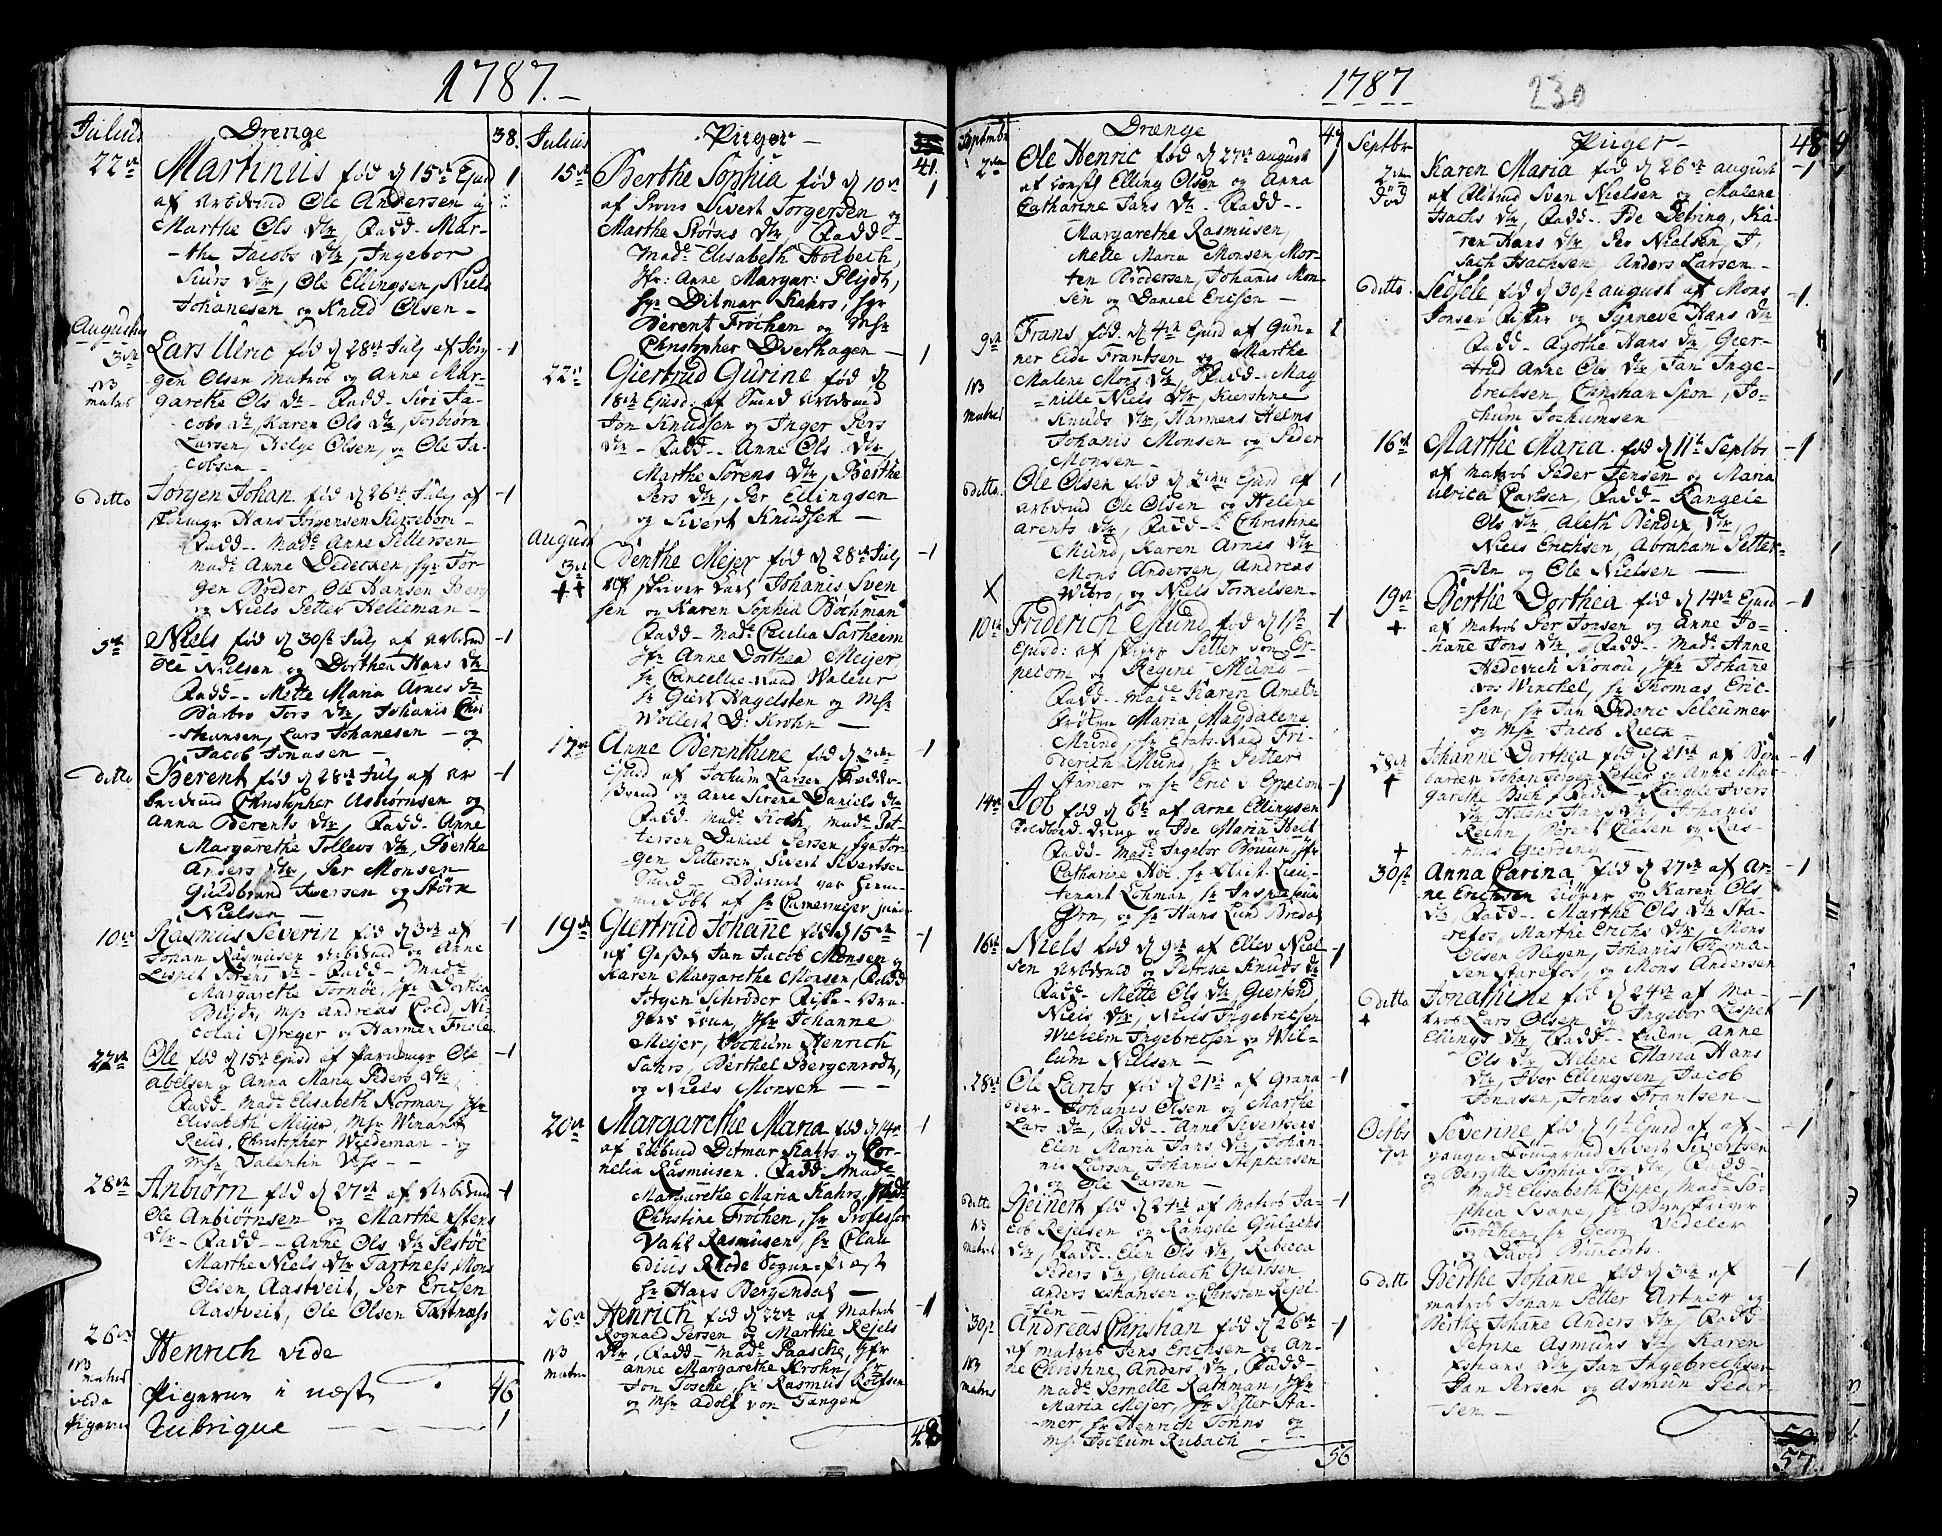 1787.
Julius
Drenge
38.
22de
Martinus fød d 15de Ejusd 1
af Arbdmd Ole Andersen og
Marthe Ols dtr Fadd. Mar-
the Jacobs dtr, Ingebor
Siurs dtr, Ole Ellingsen, Niels
Johanesen og Knud Olsen -
Augustus
3de
Lars Ulric fød d 28de July af Jør 1
gen Olsen Matros og Anne Mar-
N3
matros
garethe Ols dtr - Fadd - Siri Ja-
cobs dtr, Karen Ols dtr, Torbiørn
Larsen, Helge Olsen, og Ole Ja-
cobsen -
ditto
Jørgen Johan fød d 26de July af 1
Hans Jørgensen
Fadd - Made Anne Pettersen
made Anne Dedechen, Jør-
gen Brøder Ole Hansen Berg
og Niels Petter Helleman -
5te
Niels fød d 30te July af Arbdmd 1
Ole Nielsen og Dorthea Hans dtr
Fadd - Mette Maria Arnes dtr
Barbro Tors dtr, Johanis Chri
stiansen, Lars Johanesen - og
Jacob Jonasen -
ditto
Berent fød d 28de July af Ar 1
beidmd Christopher Asbiørnsen og
Anna Berents dtr, Fadd - Anne
Margarethe Tollevs dtr, Berthe
Anders dtr, Per Monsen
Guldbrand Iversen og Størk
Nielsen -
10de
Rasmus Severin fød d 3de af 1
Johan Rasmusen Arbdmd og Anne
Lispet Sørens dtr - Fadd - Made
Margarethe Tornøe, Jfr Dorthea
Blydt, Mr Andreas Cold Ni-
colai Greger og Harmen Friele
22de
Ole fød d 15de Ejusd af Ole 1
Abelsen og Anna Maria Peders dtr
Fadd - Made Elisabeth Norman, Jfr
Elisabeth Meyer, Mr Winard
Reud, Christopher Wiedeman - og
Mr Valentin Voss -
28de
Anbiørn fød d 27de af Arbdmd 1
Ole Anbiørnsen og Marthe Stens
dtr - Fadd - Anne Ols dtr Sestøe
Marthe Niels dtr Tartness, Mons
Olsen Aastveit, Per Ericsen
Aastveit, Ole Olsen Tartness
26de
N3
matros
vide
pigerne
Henrich vide
Pigerne i næste 46
Rubrique 1
Julius
Piger
41.
15de
Berthe Sophia fød d 10de 1
af Sivert Torgersen og
Marthe Størks dtr Fadd -
Made Elisabeth Holbech,
Jfr: Anne Margar: Plejdt,
hr Ditmar Kahrs, hr
Berent Frøchen og Mr
Christopher Overhagen - 1
22de
Giertrud Gurine fød d
18de Ejusd: af Arbdmd
Jon Knudsen og Inger Pers
dtr - Fadd - Anne Ols dtr,
Marthe Sørens dtr, Berthe
Pers dtr, Per Ellingsen
og Sivert Knudsen -
August
3de
++
Benthe Mejer fød d 28de July 1
af Skriver Karl Johanis Sven
sen og Karen Sophia Bochman
Fadd - Made Cecilia Sarheem
Jfr Anne Dorthea Meijer,
hr Cancelie-Raad Valeur
hr Giert Hagelsten og Mr
Wollert D: Krohn -
12de
Anne Berenthine fød d 2de 1
Ejusd af Jochum Larsen
og Anne Sirene Daniels dtr
Fadd - Made Koch, made Pet-
tersen Daniel Persen, Jør-
gen Pettersen, Sivert Sivertsen
Barnet var hiem-
medøbt af hr Camermejer junior
19de
Giertrud Johanne fød d 15de 1
af Jan Jacob Monsen og
Karen Margarethe Monsen, Fadd
Jørgen Schrøder
Jfr Johanne
Meijer, Jochum Henrich
Sahrs, Berthel Bergenrodt,
og Niels Monsen - -
20de
Margarethe Maria fød d 14de 1
af Ditmar Slatts og Cor-
nelia Rasmusen. Fadd: Made
Margarethe Maria Kahrs, Made
Christine Frøchen, hr Professor
Vahl Rasmusen, hr Clau
dius Rhode Sogne-præst
hr Hans Bergendal -
26de
N3
matros
Henrich fød d 22de af Matros 1
Rognald Persen og Marthe Rejels
dtr, Fadd - Made Paasche, Jfr
Anne Margarethe Krohn, hr
Jon Tosche, hr Rasmus Rolfsen
og Mr Adolf von Tangen
48
1787
230
September
Drænge
47
2de
Ole Henric fød d 27de august 1
af Elling Olsen og Anna
Catharine Jans dtr - Fadd -
Margarethe Rasmusen,
Mette Maria Monsen, Mor-
ten Brødersen, Johanis Mon-
sen og Daniel Ericsen -
9de
Frans fød d 4de Ejusd af Gun- 1
ner Eide Frantsen og Marthe
N3
matros
Malene Mons dtr, Fadd - Mag
nille Niels dtr, Kierstine
Knuds dtr, Harmens Helms
Johanis Monsen og Peder
Monsen -
ditto
Ole Olsen fød d 2den Ejusd af 1
Arbdmd Ole Olsen og Helene
Arents dtr, Fadd - Christine
Mund, Karen Arnes dtr
Mons Andersen, Andreas
Wibro, og Niels Tornelsen -
X
10de
Friderich Mund fød d 1te 1
Ejusd: af Petter von Er-
pecom og Regine Mund -
Fadd - Made Karen Ameln
Frøken Maria Magdalene
Mund, hr Etats-Raad Fri-
derich Mund, hr Petter
Stamer og hr Eric v Erpecom
14de
Job fød d 6te af Arne Ellingsen 1
og Ide Maria Helt
Fadd - Made Ingebor Bøuun, Jfr
Catharine Hoe, hr Lieu-
tenant Lehman, hr Inspecteur
Ørn, og hr Hans Lund Bredal
16de
Niels fød d 9de af Ellev Niel 1
sen Arbdmd og Petrese Knuds dtr
Fadd - Mette Ols dtr, Giertrud
Niels dtr, Niels Ingebretsen
Wilhelm Ingebretsen og Wil-
lum Nielsen -
28de
Ole Larits fød d 21de af Grana 1
der - Johanes Olsen og Marthe
Lars dtr, Fadd - Anne Siverts
Elen Maria Jans dtr, Johan-
nis Larsen, Johanis Stephensen
og Ole Larsen -
ditto
N3
matros
Reinert fød d 24de af Matros Ja- 1
cob Rejelsen og Rangele Gulachs
dtr, Fadd - Elen Ols dtr, Rebecca
Peders dtr, Gulach Giertsen
Anders Johansen og Christen Rejel-
sen -
30te
N3
matros
Andreas Christian fød d 26de 1
af matros Jens Erichsen og An-
ne Christine Anders dtr, Fadd -
Made Pernelle Rathman, Jfr
Maria Mejer, hr Petter Sta-
mer, hr Henrich Tønns og
Mr Jochum Rubach -
56
Septbr
Piger
48
2de
død
Karen Maria fød d 26de august 1
af Arbmd Sven Nielsen og Malene
Isachs dtr, Fadd - Ide Detring, Ka-
ren Hans dtr Per Nielsen, I,
sach Isachsen, Anders Larsen -
ditto
Sidsele fød d 30te august af Mons 1
Jonsen og Synneve Hans dtr
Fadd - Agothe Hans dtr Gier-
trud Anne Ols dtr Jan Inge-
brechsen, Christian Spøn, Jo-
chum Jochumsen
16de
Marthe Maria fød d 11te Septbr 1
af Matros Peder Jensen og Maria
Ulrica Carlsen, Fadd - Rangele
Ols dtr, Aleth Bendix dtr
Niels Erichsen, Abraham Petter-
sen og Ole Nielsen -
19de
+
Berthe Dorthea fød d 14de Ejusd 1
af matros Per Jonsen og Anne Jo-
hane Jons dtr, Fadd - Made Anne
Hedevich Konou, Jfr Johane
von Winchel, hr Thomas Eric-
sen, hr Jan Dideric Seleumer
og Mr Jacob Rieck -
28de
+
Johanne Dorthea fød d 21de af 1
Johan Jørgen Letler og Anne Mar-
garethe Bech, Fadd - Rangele Ivers
dtr, Helene Hans dtr, Johanis
Reihn, Berent Clasen og Ras-
mus Gierding -
+
30te
Anna Carina fød d 27de af Ar- 1
ne Erichsen og Karen Ols
dtr, Fadd - Marthe Ols dtr Sta-
refos, Marthe Erichs dtr, Mons
Olsen Blegen, Johanis Torma-
sen Starefos, og Mons Andersen
ditto
+
Jonathine fød d 24de af Ma- 1
tros Lars Olsen og Ingebor Lispet
Ellings dtr, Fadd - Anne
Ols dtr, Helene Maria Hans
dtr, Iver Ellingsen, Jacob
Jonasen, Jonas Frantsen -
Octbr
7de
Severine fød d 1te Ejusd af af- 1
gangne Sivert Sivertsen
og Bergitte Sophia Jos dtr, Fadd -
Made Elisabeth Cappe, Made So-
phia Bøane, hr Byeskriver
Frøchen, hr Georg Vedeler
og David Binerts.
ditto
Berthe Johane fød d 3de af 1
Matros Johan Petter Artner og
Berthe Johane Anders dtr, Fadd
Petrike Asmuns dtr, Karen
Johans dtr, Jan Ingebrechsen
Jan Persen og Asmun Peder
sen -
57